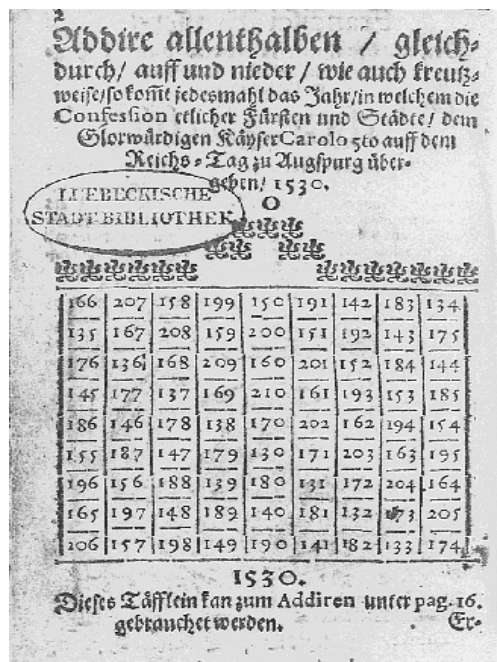 2
Addire allenthalben / gleich⸗
durch/ auff und nieder / wie auch kreutz⸗
weise/so kom̃t jedesmahl das Jahr/in welchem die
Confession etlicher Fürsten und Städte/ dem
Glorwürdigen Käyser Carolo 5to auff dem
Reichs⸗Tag zu Augspurg über⸗
geben/ 1530.
O
LUEBECKISCHE
STADTBIBLIOTHEK
166 207 158 199 150 191 142 183 134
135 167 208 159 200 151 192 143 175
176 136 168 209 160 201 152 184 144
145 177 137 169 210 161 193 153 185
186 146 178 138 170 202 162 194 154
155 187 147 179 130 171 203 163 195
196 156 188 139 180 131 172 204 164
165 197 148 189 140 181 132 173 205
206 157 198 149 190 141 182 133 174
1530.
Dieses Täfflein kan zum Addiren unter pag. 16.
gebrauchet werden. Er⸗